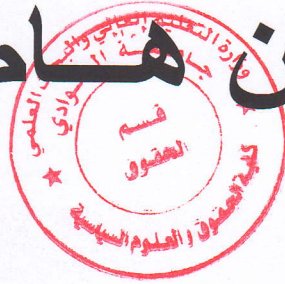 ن هـــام
وزارة التعليم العالي والبحث العلمي
جامعة الوادي
قسم
الحقوق
كلية الحقوق والعلوم السياسية